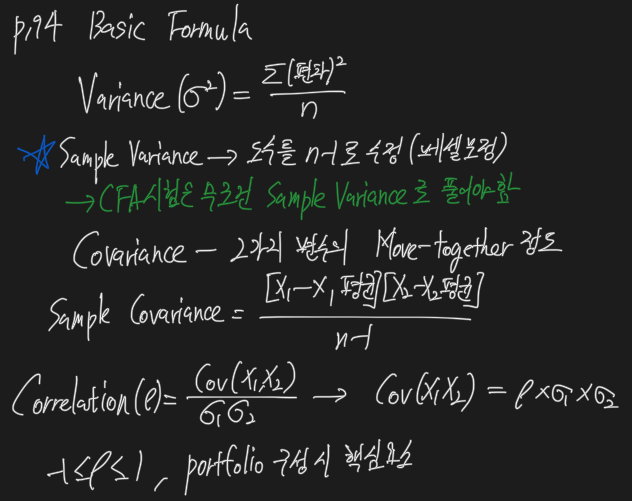 p.94 Basic Formula
Variance (σ²) = Σ(편차)² / n
☆ Sample Variance → 도수를 n-1로 수정 (베셀보정)
→ CFA시험은 무조건 Sample Variance로 풀어야함
Covariance - 2가지 변수의 Move-together 정도
Sample Covariance = [X₁-X₁평균][X₂-X₂평균] / n-1
Correlation(ρ) = Cov(X₁,X₂) / σ₁σ₂ → Cov(X₁X₂) = ρ×σ₁×σ₂
-1≤ρ≤1, portfolio 구성시 핵심요소